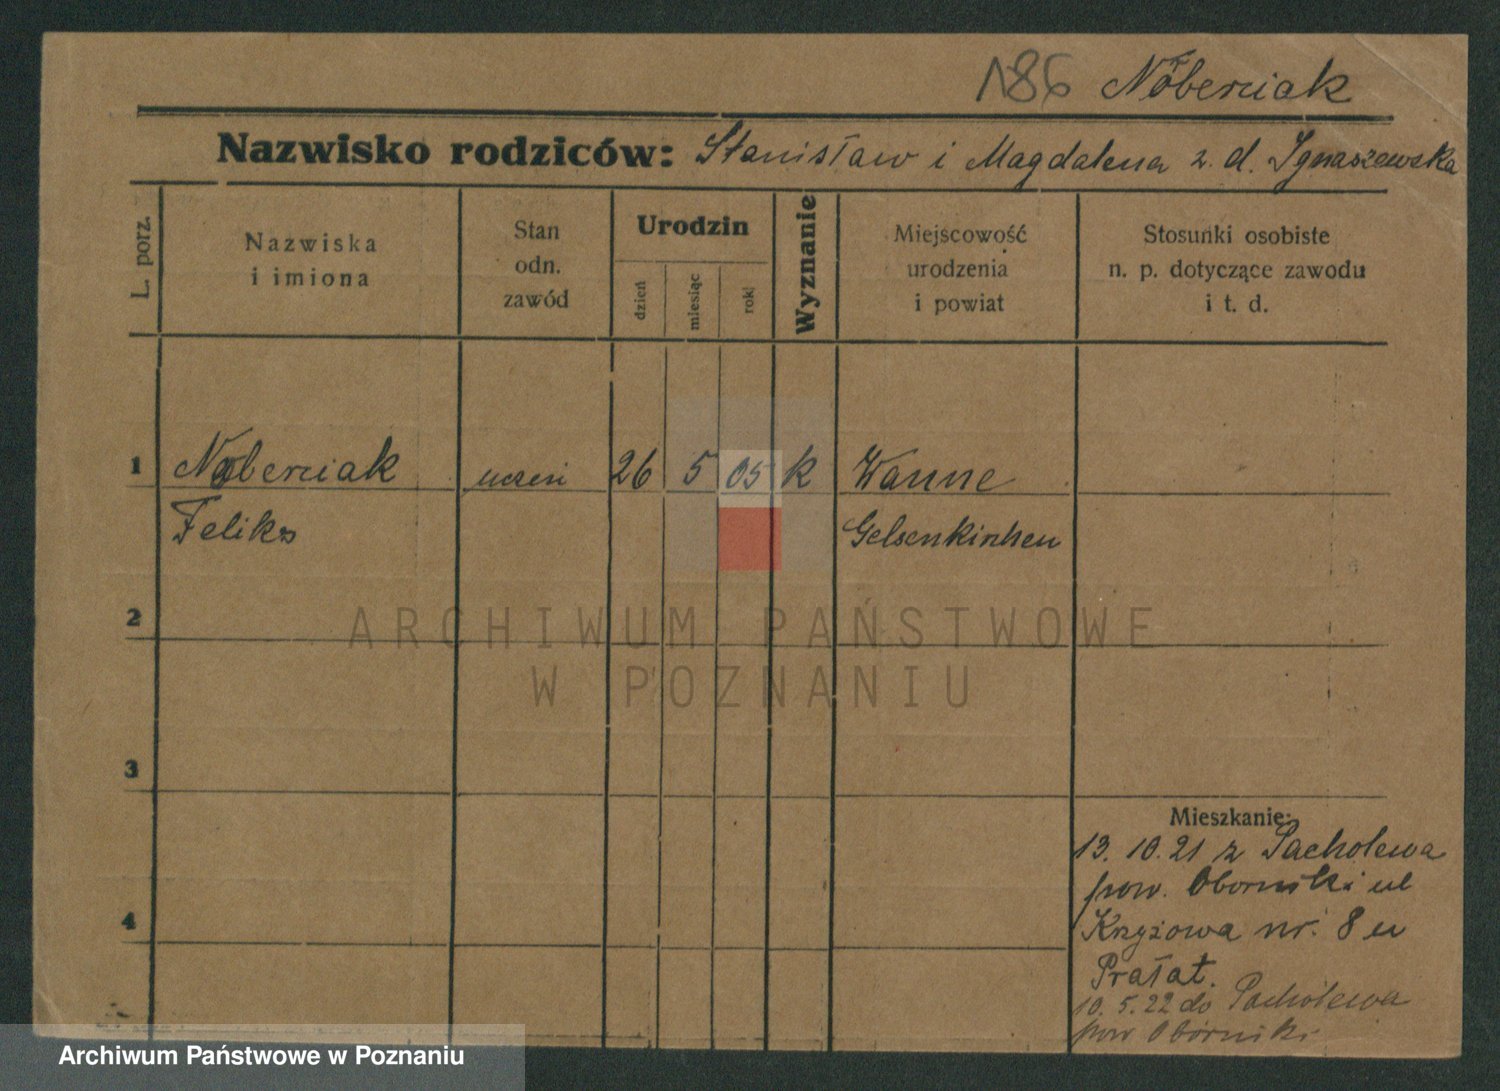 186 Noberciak
Nazwisko rodziców: Stanisław i Magdalena z. d. Ignaszewska
L. porz.
Nazwiska
i imiona
Stan
odn.
zawód
Urodzin
dzień
miesiąc
rok
Wyznanie
Miejscowość
urodzenia
i powiat
Stosunki osobiste
n. p. dotyczące zawodu
i t. d.
1 Noberciak uczeń 26 5 05 k Wanne
Feliks Gelsenkirhen
2
ARCHIWUM PAŃSTWOWE
W POZNANIU
3
Mieszkanie:
13. 10. 21 z Pacholewa
pow. Oborniki ul
4
Krzyżowa nr. 8 u
Prałat.
10. 5. 22 do Pacholewa
pow Oborniki
Archiwum Państwowe w Poznaniu